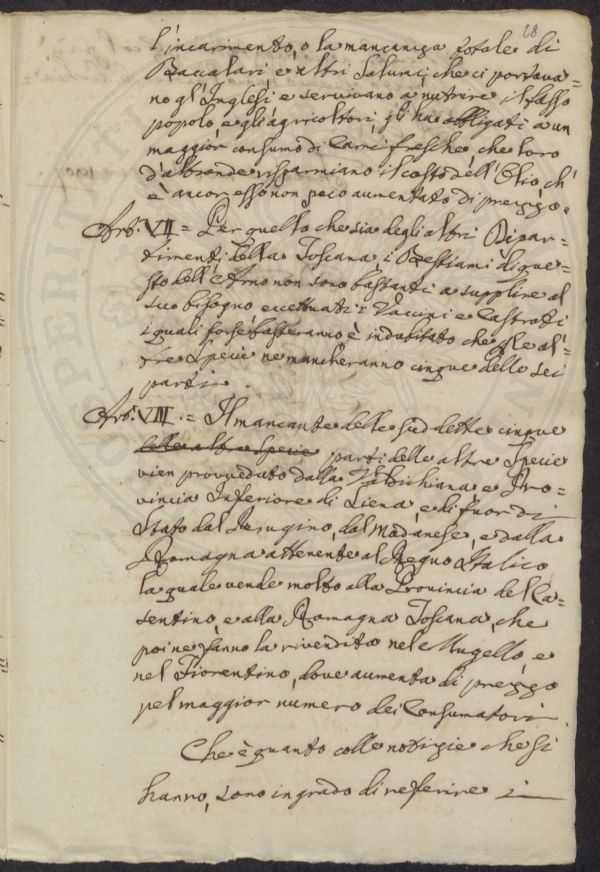 68
l'incarimento, o la mancanza totale di
Baccalari e altri Salumi, che ci portava=
no gl'Inglesi e servivano a nutrire il basso
popolo e gli agricoltori, gli han obbligati a un
maggior consumo di Carni fresche, che loro
d'altronde risparmiano il costo dell'Olio ch'
è ancor esso non poco aumentato di prezzo.
Art. VII = Per quello che sia degli altri Dipar=
timenti della Toscana, i Bestiami di que=
sto dell'Arno non sono bastanti a supplire al
suo bisogno eccettuati i Vaccini e Castrati
i quali forse basteranno, è indubitato che alle al=
tre Specie ne mancheranno cinque delle sei
parti.
Art. VIII. = Il mancante delle suddette cinque
delle altre Specie parti delle altre Specie
vien provveduto dalla Valdichiana e Pro=
vincia Inferiore di Siena, e di fuor di
Stato dal Perugino, dal Modanese, e dalla
Romagna attenente al Regno Italico
la quale vende molto alla Provincia del Ca=
sentino, e alla Romagna Toscana, che
poi ne fanno la rivendita nel Mugello, e
nel Fiorentino, dove aumenta di prezzo
pel maggior numero dei Consumatori.
Che è quanto colle notizie che si
hanno, sono in grado di referire